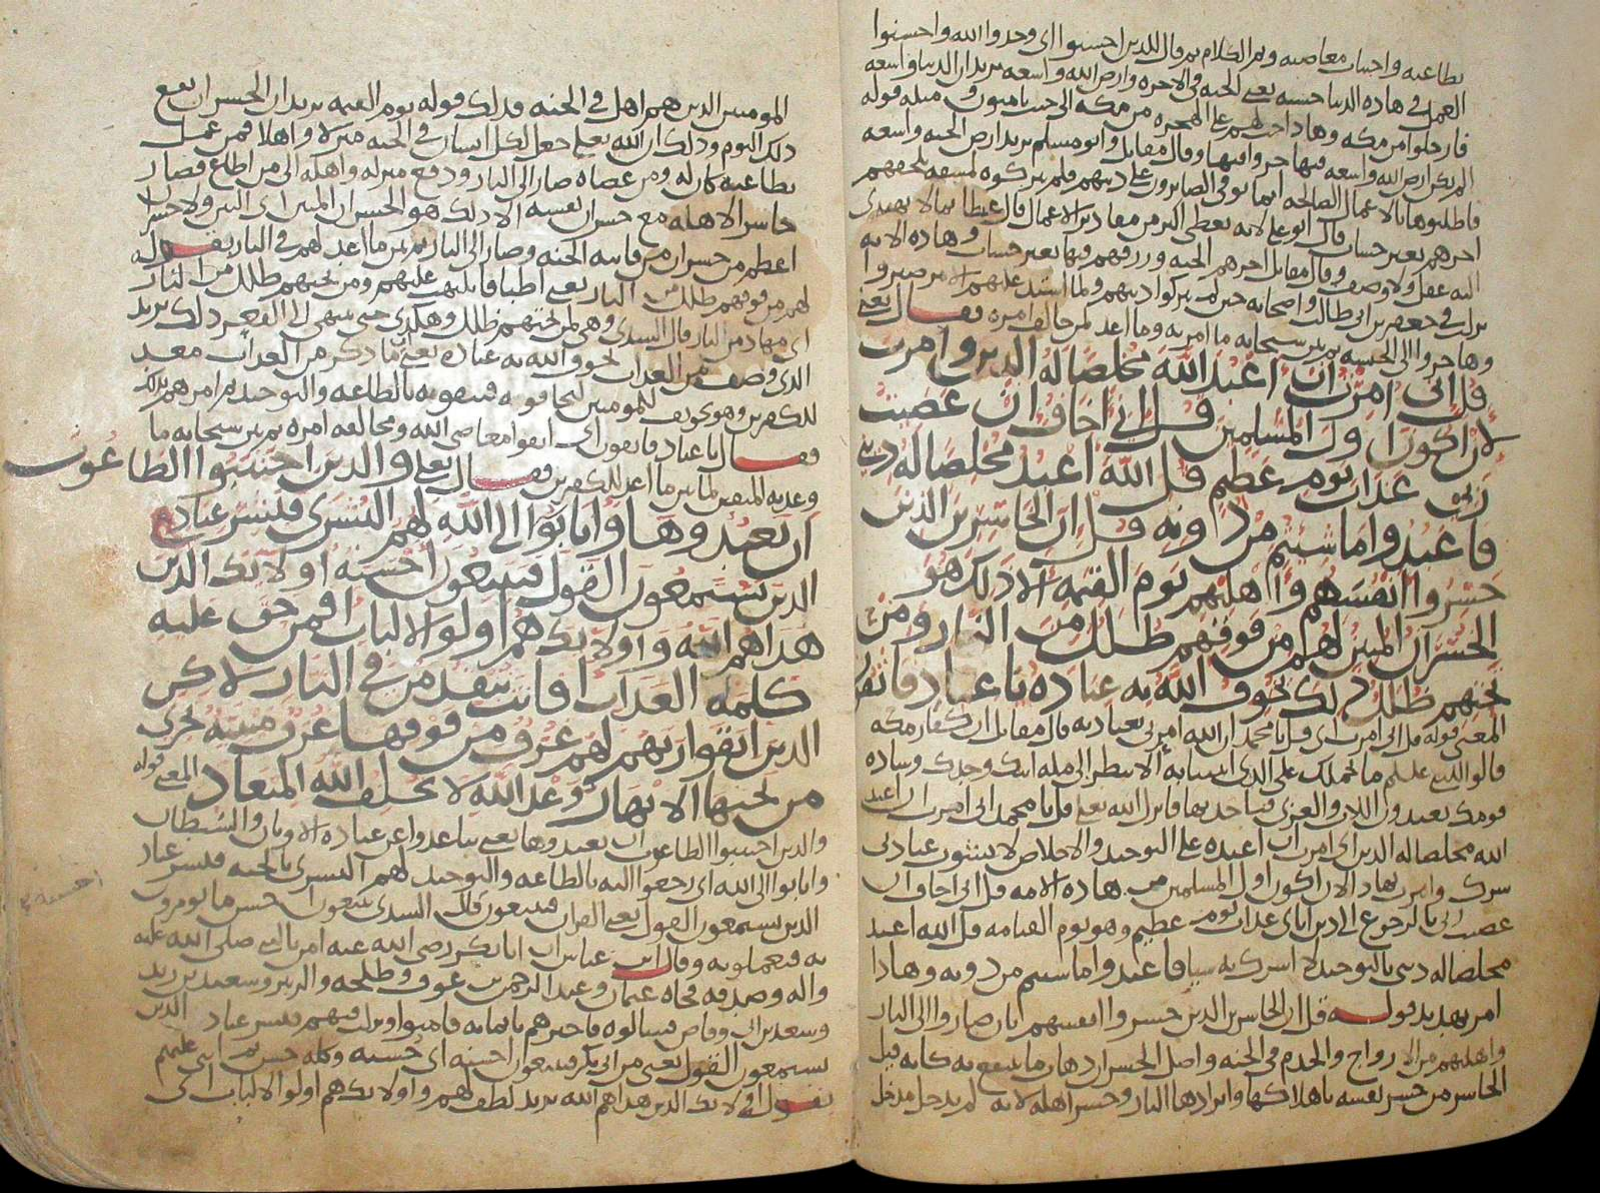 بطاعته واجتناب معاصيه وتم الكلام ثم قال للذين احسنوا اى وحدوا الله واحسنوا
العمل فى هاذه الدنيا حسنه يعنى الجنه فى الاخره وارض الله واسعه يريد ارض الدنيا واسعه
فارحلوا من مكه وهاذا حث لهم على الهجره من مكه الى حيث يامنون ومثله قوله
الم تكن ارض الله واسعه فتهاجروا فيها وقال مقاتل وابو مسلم يريد ارض الجنه واسعه
فاطلبوها بالاعمال الصالحه انما يوفى الصابرون على دينهم فلم يتركوه لمشقه تلحقهم
اجرهم بغير حساب قال ابو على لانه يعطى اكثر من مقادير الاعمال قال عطا بما لا يهتدى
اليه عقل ولا وصف وقال مقاتل اجرهم الجنه ورزقهم فيها بغير حساب وهاذه الايه
نزلت فى جعفر بن ابى طالب واصحابه حين لم يتركوا دينهم ولما اشتد عليهم الامر صبروا
وهاجروا الى الحبشه ثم بين سبحانه ما امر به وما اعد لمن خالف امره فقال يعنى
قل انى امرت ان اعبد الله مخلصا له الدين وامرت
لان اكون اول المسلمين قل انى اخاف ان عصيت
ربى عذاب يوم عظيم قل الله اعبد مخلصا له دينى
فاعبدوا ما شيتم من دونه قل ان الخاسرين الذين
خسروا انفسهم واهليهم يوم القيمه الا ذلك هو
الخسران المبين لهم من فوقهم ظلل من النار ومن
تحتهم ظلل ذلك يخوف الله به عباده يا عباد فاتقون
المعنى قوله قل انى امرت اى قل يا محمد ان الله امرنى بعبادته قال مقاتل ان كفار مكه
قالوا للنبى عليلم ما حملك على الذى اتيتنا به الا تنظر الى مله ابيك وجدك وساده
قومك يعبدون اللات والعزى فتاخذ بها فانزل الله تعلى قل يا محمد انى امرت ان اعبد
الله مخلصا له الدين اى امرت ان اعبده على التوحيد والاخلاص لا يشوب عبادتى
شرك وامرت بهاذا لان اكون اول المسلمين من هاذه الامه قل انى اخاف ان
عصيت ربى بالرجوع الى دين اباى عذاب يوم عظيم وهو يوم القيامه قل الله اعبد
مخلصا له دينى بالتوحيد لا اشرك به شيا فاعبدوا ما شيتم من دونه وهاذا
امر تهديد قوله قل ان الخاسرين الذين خسروا انفسهم بان صاروا الى النار
واهليهم من الازواج والخدم فى الجنه واصل الخسران ذهاب ما ينتفع به كانه قيل
الخاسر من خسر نفسه باهلاكها وايرادها النار وخسر اهله لانه لم يدخل مدخل
المومنين الذين هم اهل فى الجنه فذلك قوله يوم القيمه يريد ان الخسران يقع
ذلك اليوم وذلك ان الله تعلى جعل لكل انسان فى الجنه منزلا واهلا فمن عمل
بطاعته كان له ومن عصاه صار الى النار ودفع منزله واهله الى من اطاع فصار
خاسرا لاهله مع خسران نفسه الا ذلك هو الخسران المبين اى البين ولا خسران
اعظم من خسران من فاتته الجنه وصار الى النار ثم بين ما اعد لهم فى النار بقوله
لهم من فوقهم ظلل من النار يعنى اطباقا تلتهب عليهم ومن تحتهم ظلل من النار
اى مهاد من النار قال السدى وهى لمن تحتهم ظلل وهكذى حتى ينتهى الى القعر ذلك يريد
الذى وصف من العذاب يخوف الله به عباده يعنى ما ذكر من العذاب معد
للكفرين وهو تخويف للمومنين ليخافوه فيتقوه بالطاعه والتوحيد ثم امرهم بذلك
فقال يا عباد فاتقون اى اتقوا معاصى الله ومخالفه امره ثم بين سبحانه ما
وعد به المتقين لما بين ما اعد للكفرين فقال تعلى والذين اجتنبوا الطاغوت
ان يعبدوها وانابوا الى الله لهم البشرى فبشر عباد
الذين يستمعون القول فيتبعون احسنه اولايك الذين
هداهم الله واولايك هم اولوا الالباب افمن حق عليه
كلمه العذاب افانت تنقذ من فى النار لاكن
الذين اتقوا ربهم لهم غرف من فوقها غرف مبنيه تجرى
من تحتها الانهار وعد الله لا يخلف الله الميعاد المعنى قوله
والذين اجتنبوا الطاغوت ان يعبدوها يعنى تباعدوا عن عباده الاوثان والشيطان
وانابوا الى الله اى رجعوا اليه بالطاعه والتوحيد لهم البشرى بالجنه فبشر عباد
الذين يستمعون القول يعنى القران فيتبعون قال السدى يتبعون احسن ما يومرون
به فيعملون به وقال ابن عباس ان ابا بكر رضى الله عنه امن بالنبى صلى الله عليه
واله وصدقه فجاه عثمان وعبد الرحمن بن عوف وطلحه والزبير وسعيد بن زيد
وسعد بن ابى وقاص فسالوه فاخبرهم بايمانه فامنوا ونزلت فيهم فبشر عباد الذين
يستمعون القول يعنى من ابى بكر فيتبعون احسنه اى حسنه وكله حسن ثم اثنى عليهم
بقوله اولايك الذين هداهم الله يريد لطف لهم واولايك هم اولوا الالباب اى
احسنه